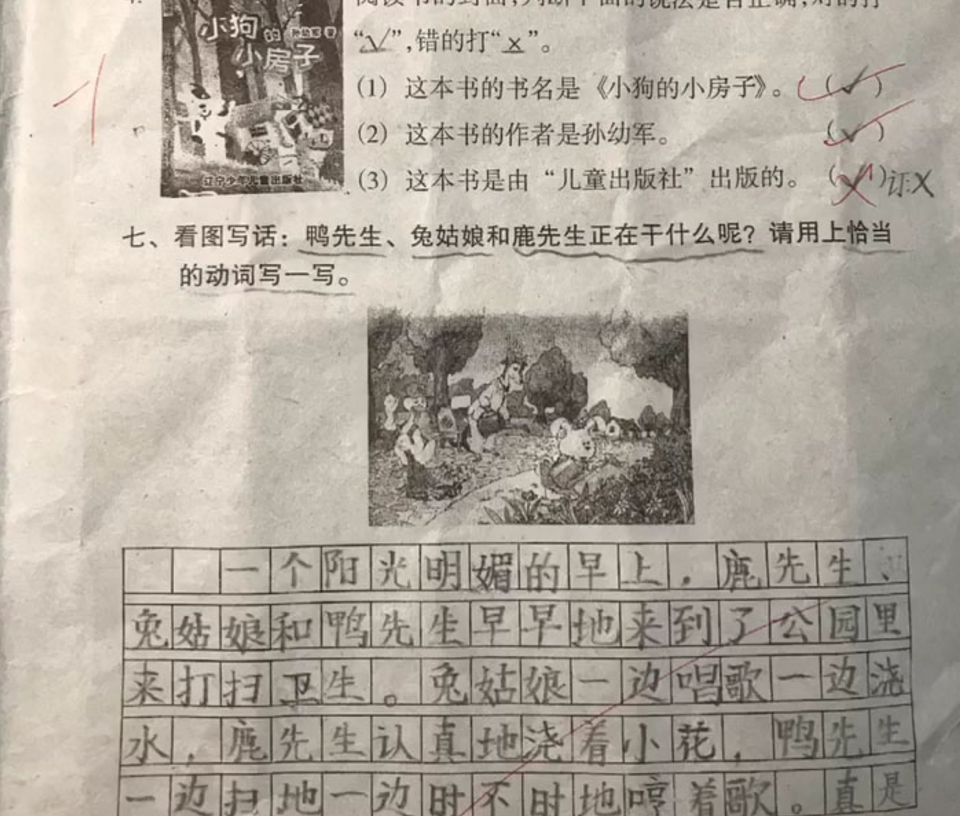 小狗的 孙幼军 著
小房子
辽宁少年儿童出版社
“√”,错的打“×”。
(1) 这本书的书名是《小狗的小房子》。 (√)
(2) 这本书的作者是孙幼军。 (√)
(3) 这本书是由“儿童出版社”出版的。 ( )订:X
七、看图写话:鸭先生、兔姑娘和鹿先生正在干什么呢?请用上恰当
的动词写一写。
一个阳光明媚的早上,鹿先生、
兔姑娘和鸭先生早早地来到了公园里
来打扫卫生。兔姑娘一边唱歌一边浇
水,鹿先生认真地浇着小花,鸭先生
一边扫地一边时不时地哼着歌。真是